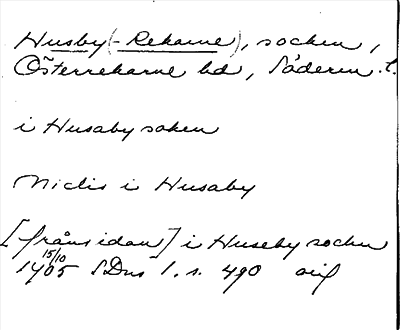 Husby (-Rekarne), socken,
Österrekarne hd, Söderm. l.
i Husaby soken
Niclis i Husaby
[frånsidan] i Huseby socken
15/10
1405 SDns 1. s. 490 orig